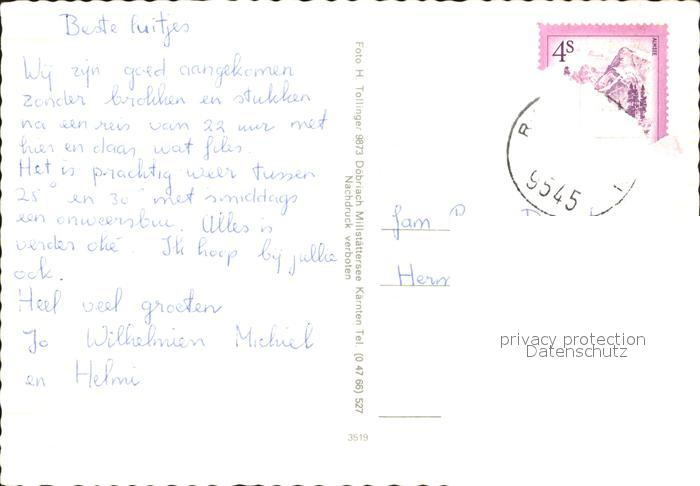 Beste luitjes
Wij zijn goed aangekomen
zonder brokken en stukken
na een reis van 22 uur met
hier en daar wat files.
Het is prachtig weer tussen
25° en 30° met smiddags
een onweersbui. Alles is
verder oké. Ik hoop bij jullie
ook.
Heel veel groeten
Jo Wilhelmien Michiel
en Helmi
Foto H. Tollinger 9873 Döbriach Millstättersee Kärnten Tel. (0 47 66) 527
Nachdruck verboten
3519
4S
ALMSEE
R
9545
Fam
privacy protection
Datenschutz